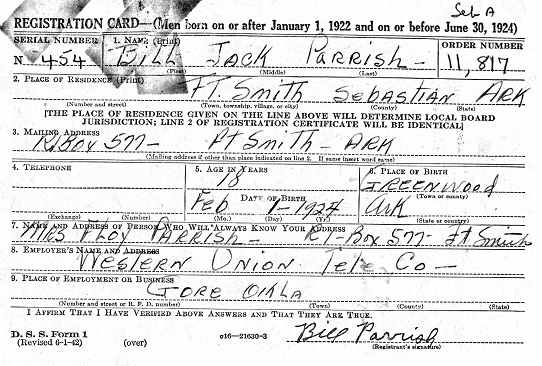 Sel A
REGISTRATION CARD—(Men born on or after January 1, 1922 and on or before June 30, 1924)
SERIAL NUMBER 1. NAME (Print) ORDER NUMBER
N. 454 Bill Jack Parrish - 11,817
(First) (Middle) (Last)
2. PLACE OF RESIDENCE (Print)
Ft. Smith Sebastian Ark
(Number and street) (Town, township, village, or city) (County) (State)
[THE PLACE OF RESIDENCE GIVEN ON THE LINE ABOVE WILL DETERMINE LOCAL BOARD
JURISDICTION; LINE 2 OF REGISTRATION CERTIFICATE WILL BE IDENTICAL]
3. MAILING ADDRESS
R1 Box 577- Ft Smith - Ark
(Mailing address if other than place indicated on line 2. If same insert word same)
4. TELEPHONE 5. AGE IN YEARS 6. PLACE OF BIRTH
18 Greenwood
DATE OF BIRTH (Town or county)
Feb 1-1924 Ark
(Exchange) (Number) (Mo.) (Day) (Yr.) (State or country)
7. NAME AND ADDRESS OF PERSON WHO WILL ALWAYS KNOW YOUR ADDRESS
Mrs Floy Parrish - R1-Box 577- Ft Smith
8. EMPLOYER'S NAME AND ADDRESS
Western Union Tele Co -
9. PLACE OF EMPLOYMENT OR BUSINESS
Gore Okla
(Number and street or R. F. D. number) (Town) (County) (State)
I AFFIRM THAT I HAVE VERIFIED ABOVE ANSWERS AND THAT THEY ARE TRUE.
D. S. S. Form 1
(Revised 6-1-42) (over) c16—21630-3 Bill Parrish
(Registrant's signature)